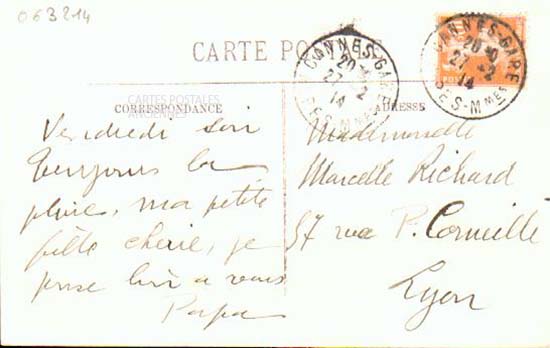 063214
CARTE POSTALE
CANNES-GARE
20
27 - 2
14
CANNES-GARE
20
27 - 2
14
CARTES POSTALES
ANCIENNES
CORRESPONDANCE
ADRESSE
Vendredi soir
Toujours la
pluie, ma petite
fille chérie, je
pense bien à vous
Papa
Mademoiselle
Marcelle Richard
57 rue P. Corneille
Lyon